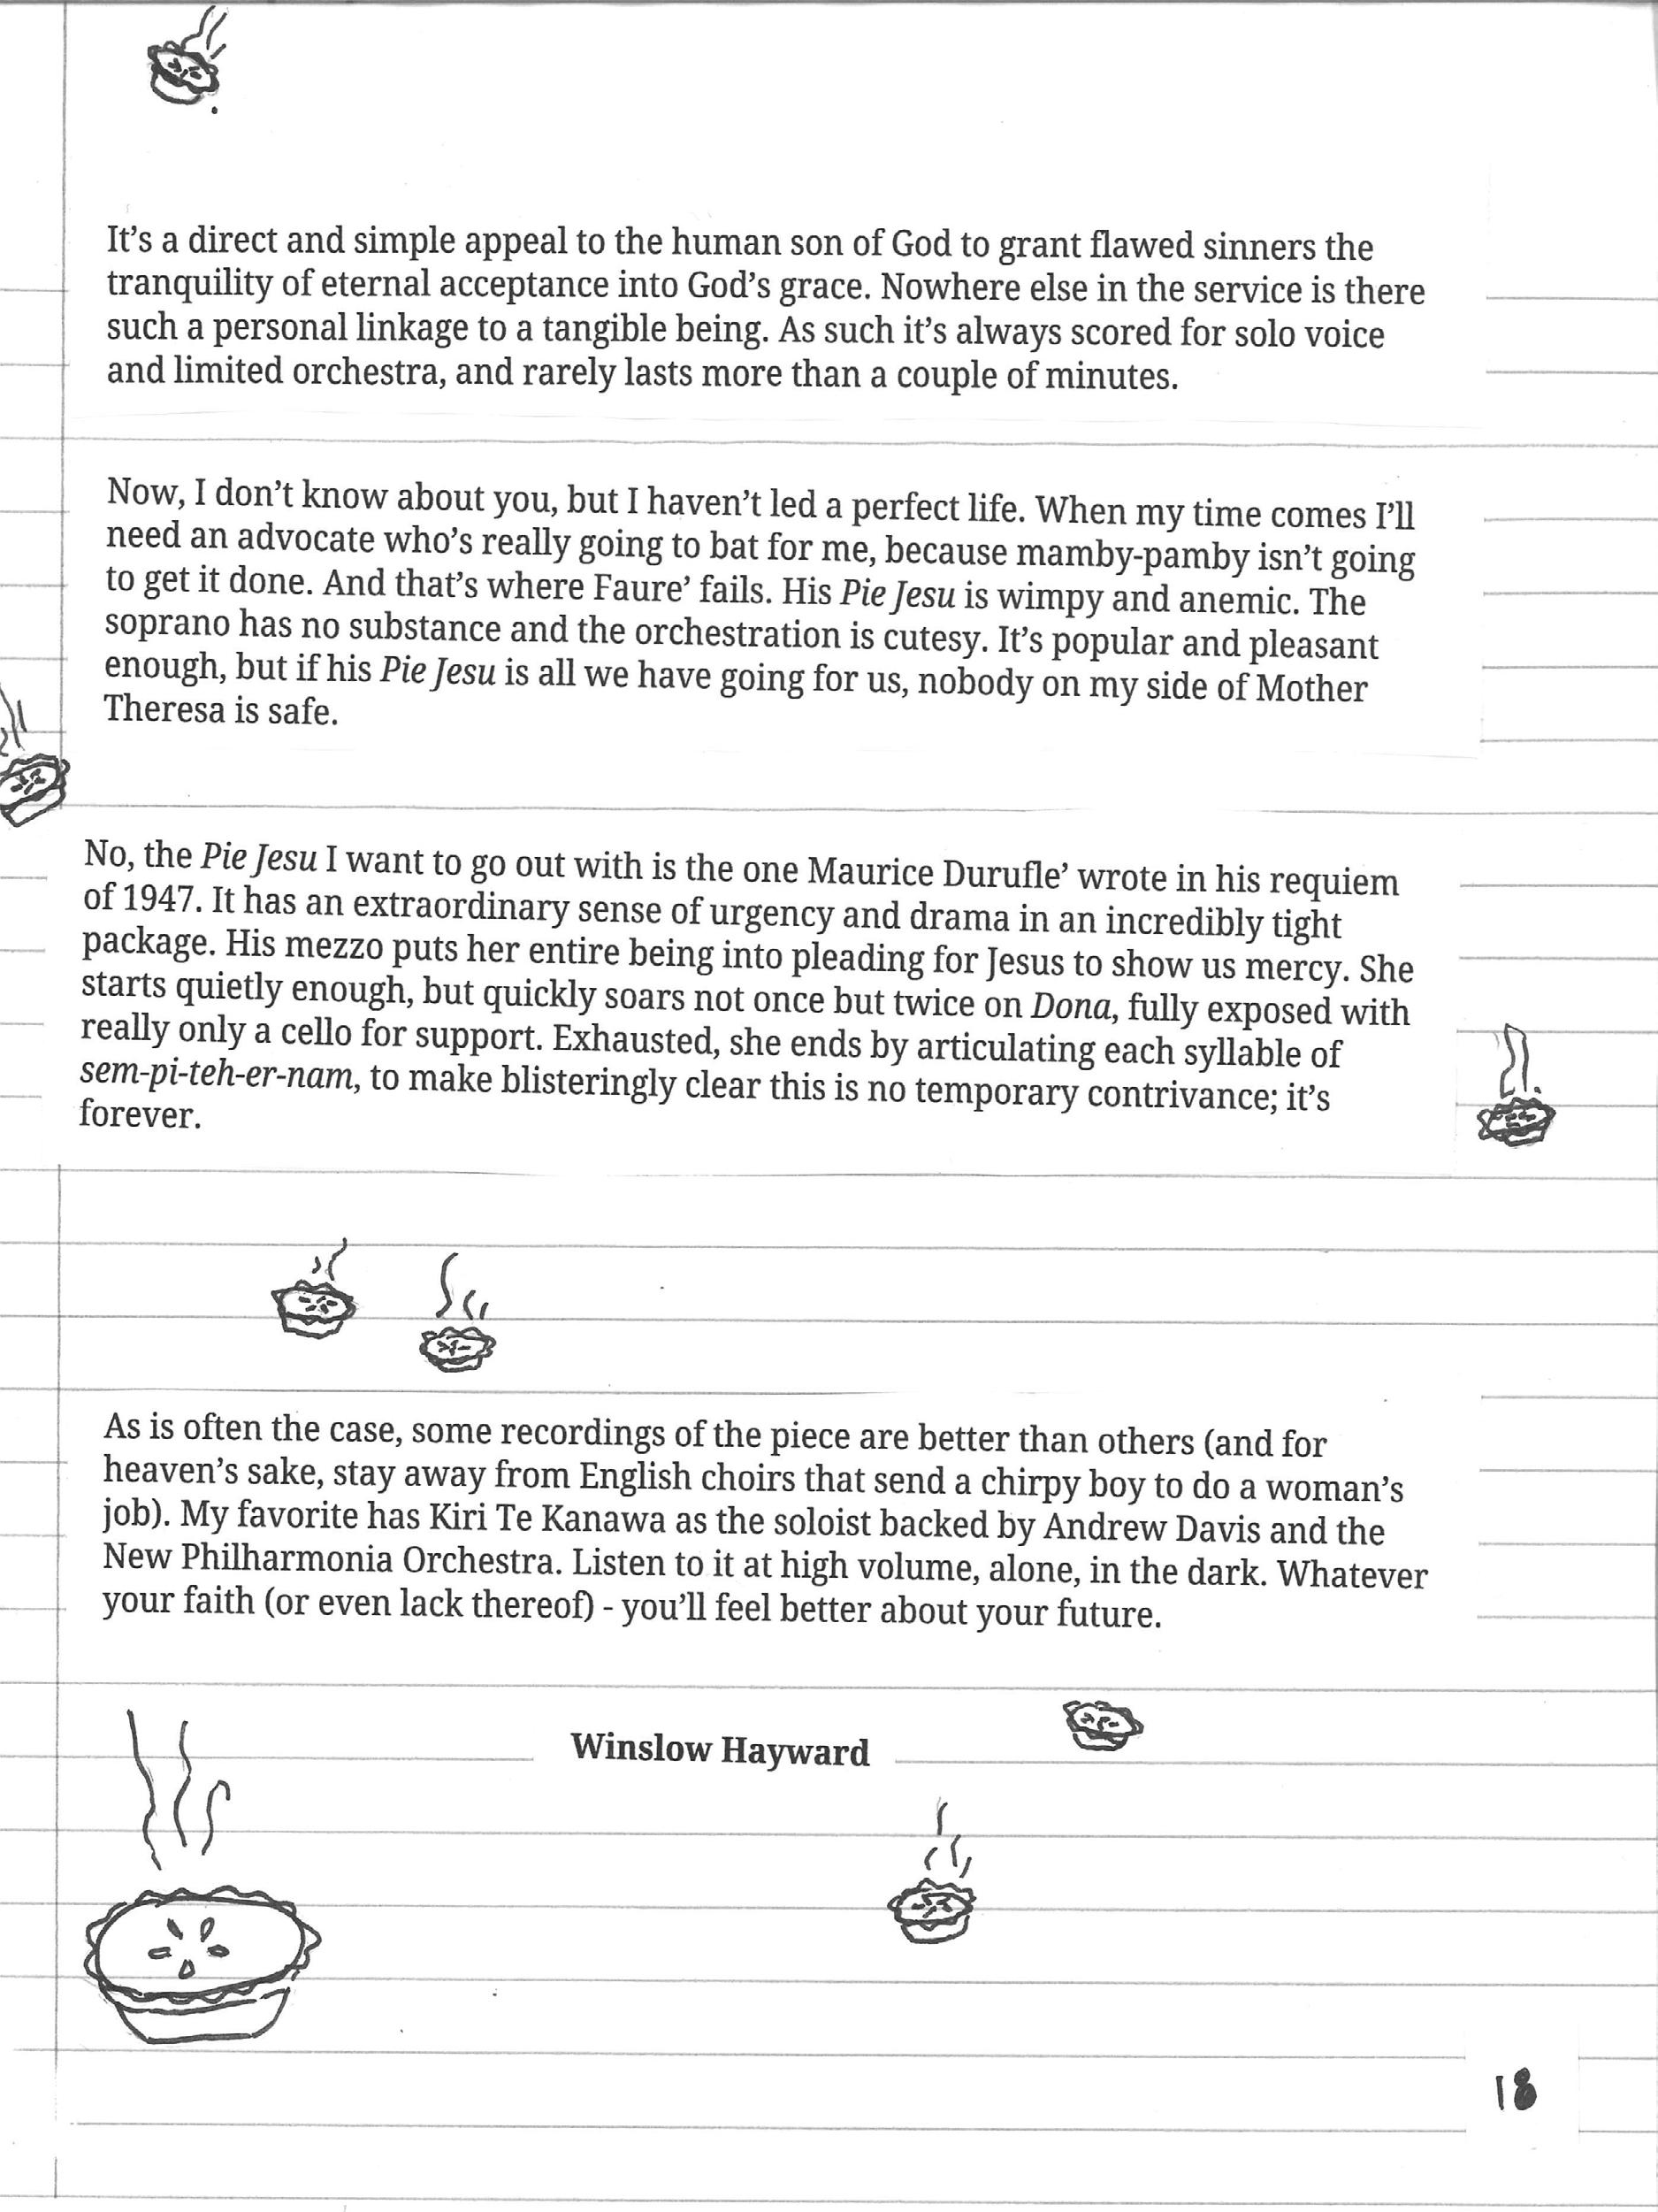 It’s a direct and simple appeal to the human son of God to grant flawed sinners the
tranquility of eternal acceptance into God’s grace. Nowhere else in the service is there
such a personal linkage to a tangible being. As such it’s always scored for solo voice
and limited orchestra, and rarely lasts more than a couple of minutes.
Now, I don’t know about you, but I haven’t led a perfect life. When my time comes I’ll
need an advocate who’s really going to bat for me, because mamby-pamby isn’t going
to get it done. And that’s where Faure’ fails. His Pie Jesu is wimpy and anemic. The
soprano has no substance and the orchestration is cutesy. It’s popular and pleasant
enough, but if his Pie Jesu is all we have going for us, nobody on my side of Mother
Theresa is safe.
No, the Pie Jesu I want to go out with is the one Maurice Durufle’ wrote in his requiem
of 1947. It has an extraordinary sense of urgency and drama in an incredibly tight
package. His mezzo puts her entire being into pleading for Jesus to show us mercy. She
starts quietly enough, but quickly soars not once but twice on Dona, fully exposed with
really only a cello for support. Exhausted, she ends by articulating each syllable of
sem-pi-teh-er-nam, to make blisteringly clear this is no temporary contrivance; it’s
forever.
As is often the case, some recordings of the piece are better than others (and for
heaven’s sake, stay away from English choirs that send a chirpy boy to do a woman’s
job). My favorite has Kiri Te Kanawa as the soloist backed by Andrew Davis and the
New Philharmonia Orchestra. Listen to it at high volume, alone, in the dark. Whatever
your faith (or even lack thereof) - you’ll feel better about your future.
Winslow Hayward
18